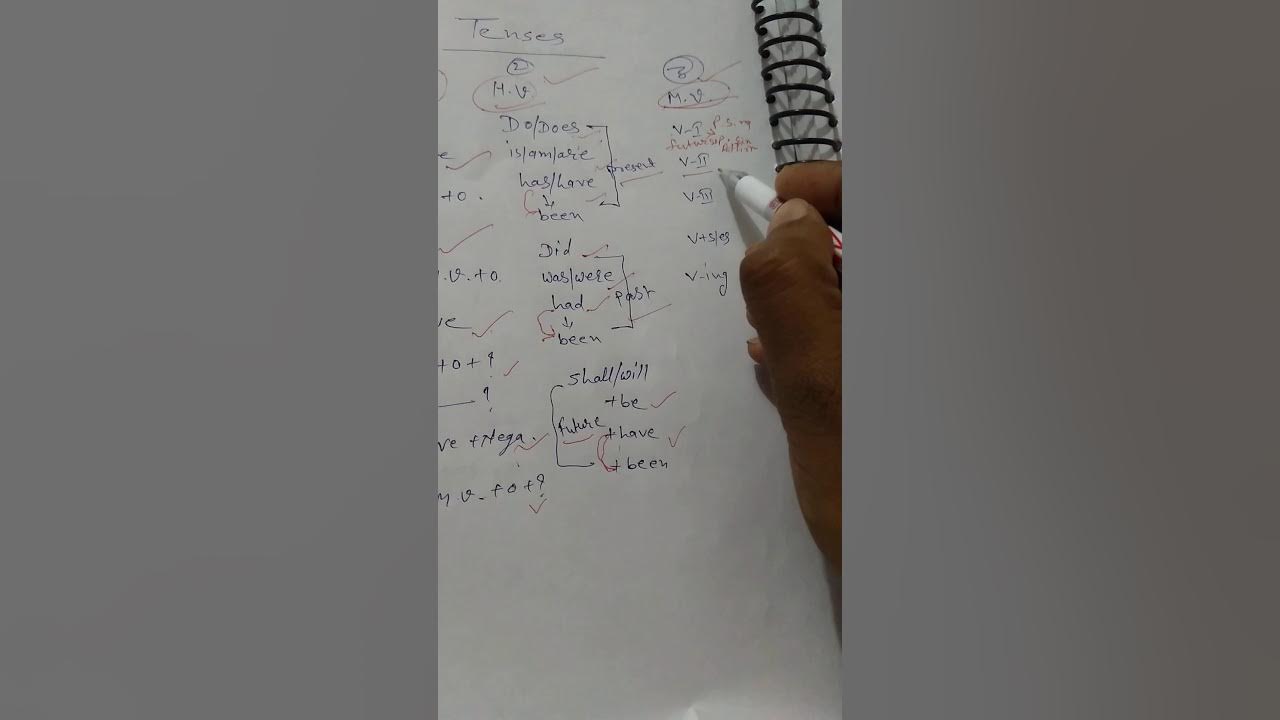 Tenses
②
H.V.
Do/Does
is/am/are
has/have
been
Present
Did
was/were
had
been
Past
Shall/will
+be
+have
+been
future
+o.
.v.+o.
+o+?
?
ve +Nega.
M.v.+o+?
③
M.V.
V-I
V-II
V-III
V+s/es
V-ing